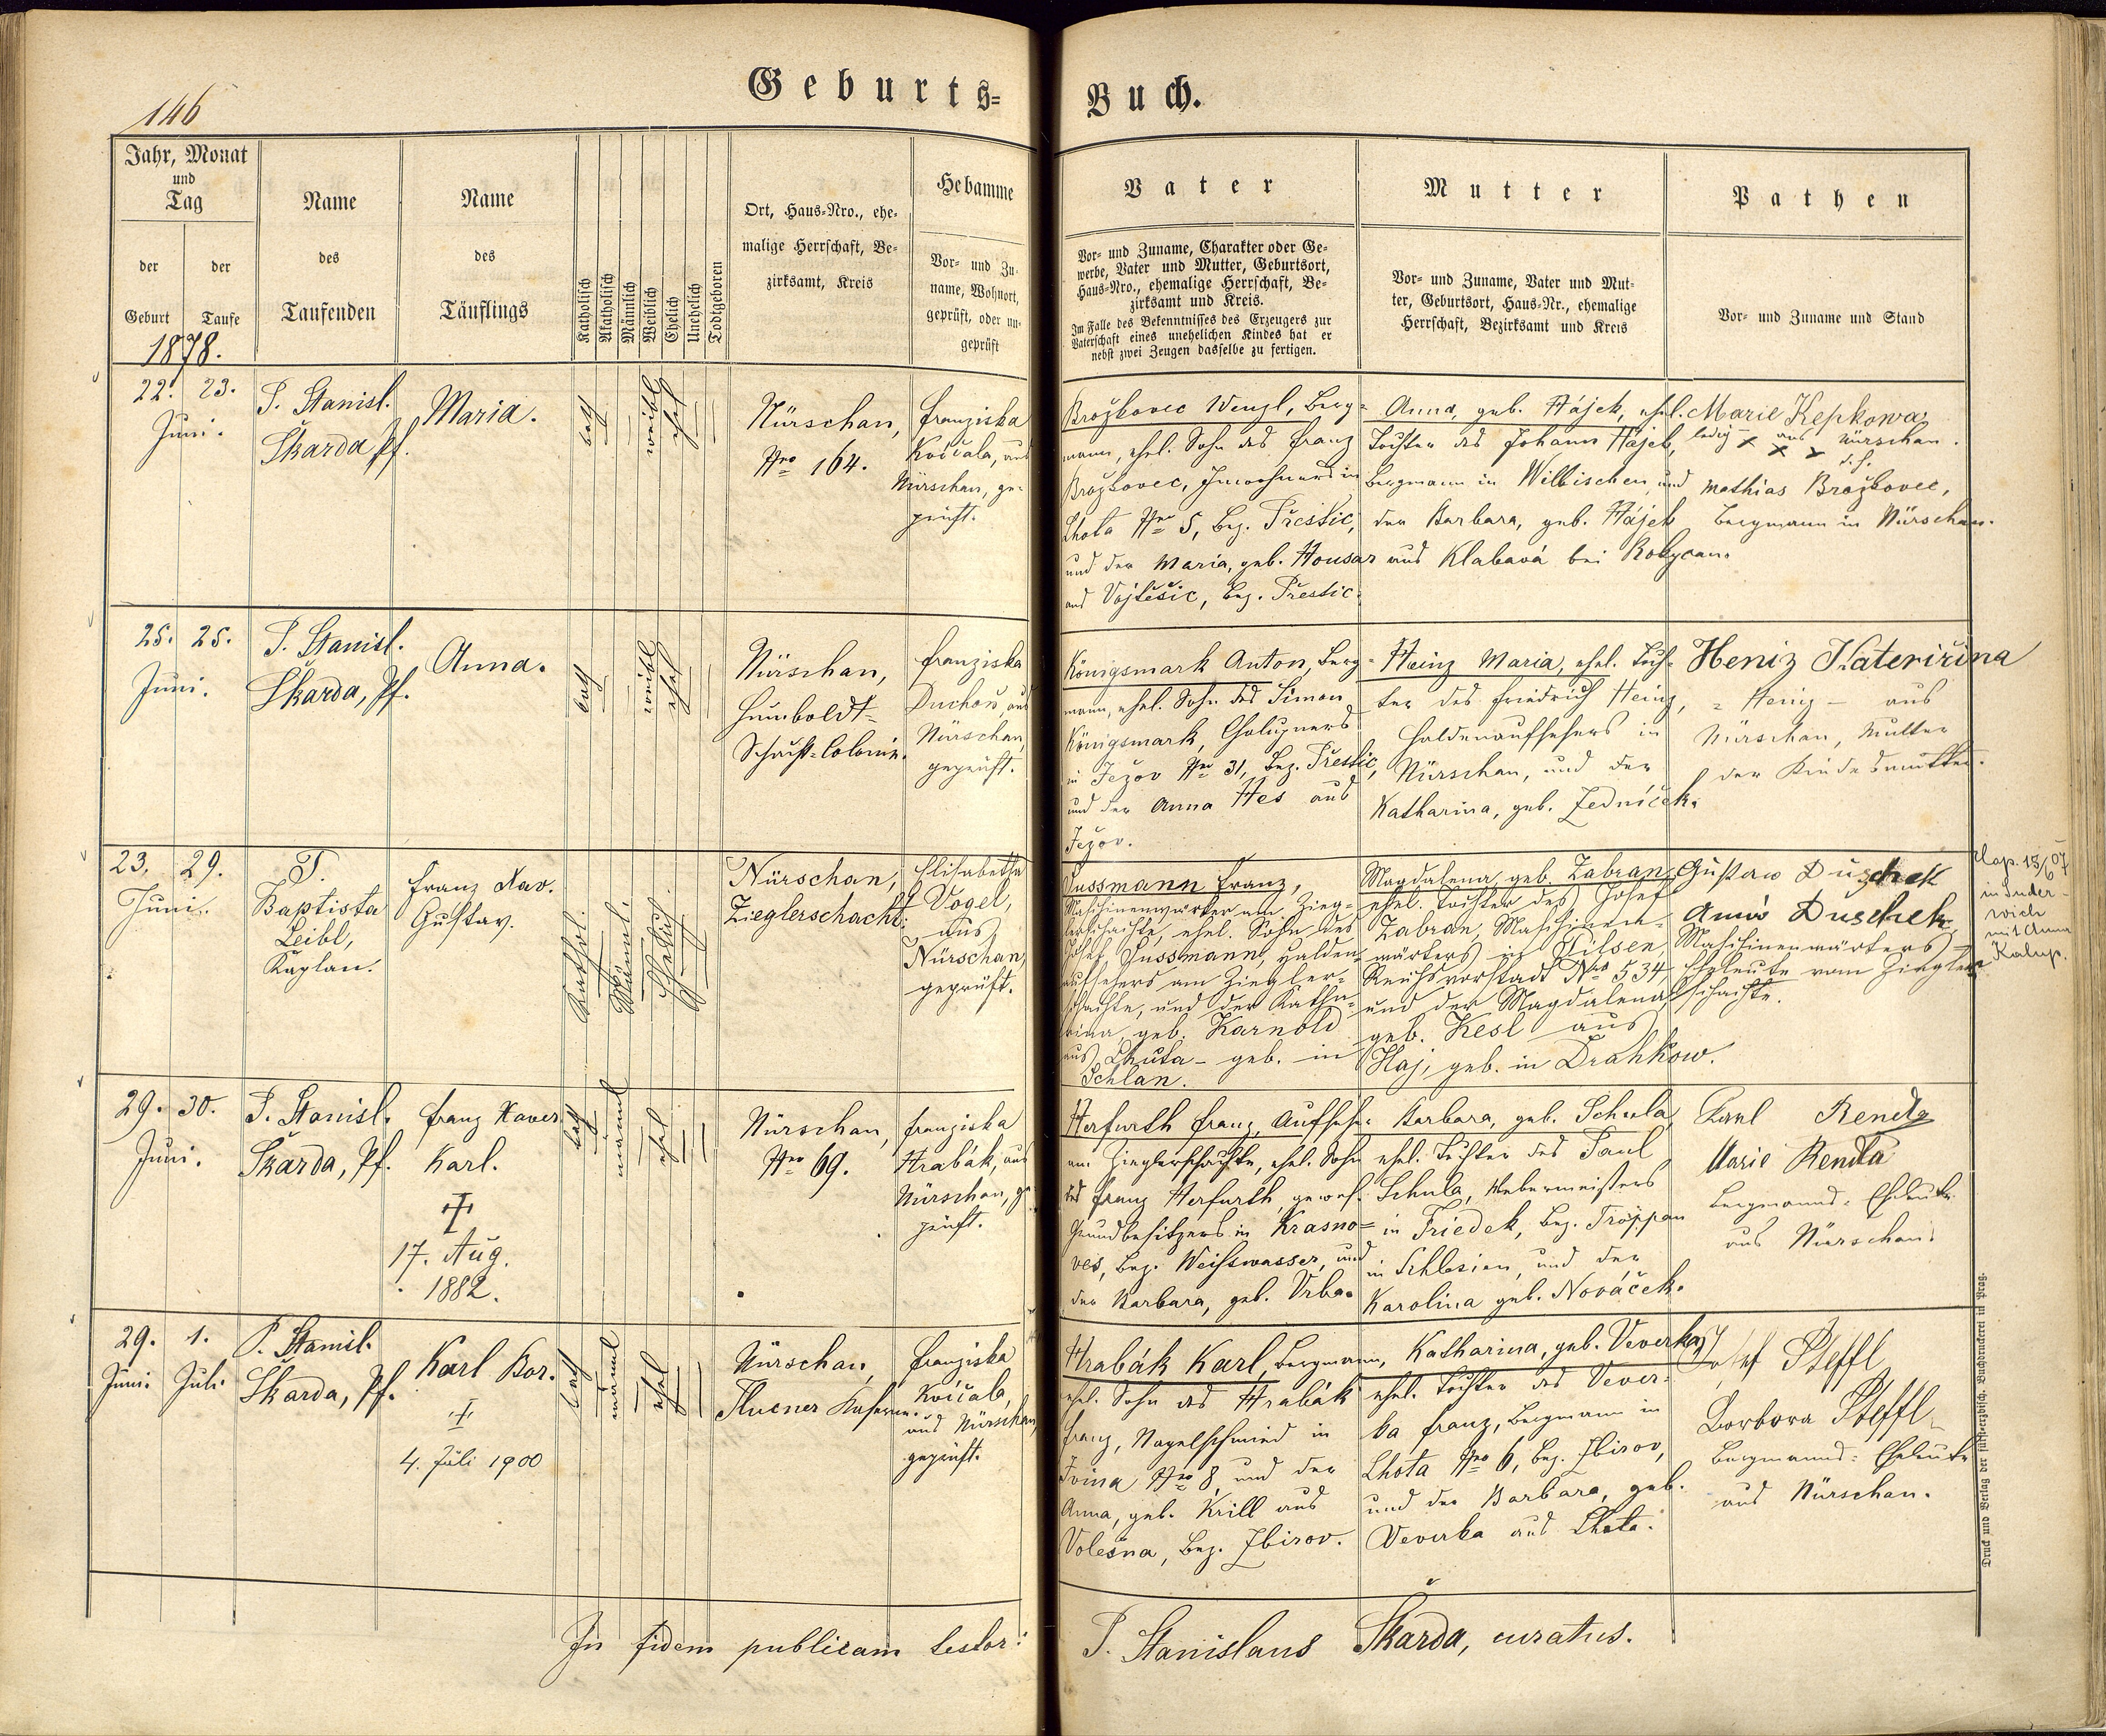 146
Geburts-
Buch.
Jahr, Monat
und
Tag
der
Geburt
der
Taufe
1878.
Name
des
Taufenden
Name
des
Täuflings
Katholisch
Akatholisch
Männlich
Weiblich
Ehelich
Unehelich
Todtgeboren
Ort, Haus-Nro., ehe-
malige Herrschaft, Be-
zirksamt, Kreis
Hebamme
Vor- und Zu-
name, Wohnort,
geprüft, oder un-
geprüft
Vater
Vor- und Zuname, Charakter oder Ge-
werbe, Vater und Mutter, Geburtsort,
Haus-Nro., ehemalige Herrschaft, Be-
zirksamt und Kreis.
Im Falle des Bekenntnisses des Erzeugers zur
Vaterschaft eines unehelichen Kindes hat er
nebst zwei Zeugen dasselbe zu fertigen.
Mutter
Vor- und Zuname, Vater und Mut-
ter, Geburtsort, Haus-Nr., ehemalige
Herrschaft, Bezirksamt und Kreis
Pathen
Vor- und Zuname und Stand
22. 23.
Juni.
P. Stanisl.
Škarda Pf.
Maria.
kath
weibl
ehel
Nürschan,
Nro 164.
Franziska
Kočcala, aus
Nürschan, ge-
prüft.
Brožkovec Wenzl, Berg-
mann, ehel. Sohn des Franz
Brožkovec, Inwohners in
Lhota Nro 5, Bez. Přestic,
und der Maria, geb. Housar
aus Vojtěšic, Bez. Přestic.
Anna, geb. Hájek, ehel.
Tochter des Johann Hájek,
Bergmann in Wilkischen, und
der Barbara, geb. Hájek
aus Klabavá bei Rokycan.
Marie Kepkowa
ledig x aus Nürschan.
x x
Mathias Brožkovec,
Bergmann in Nürschan.
25. 25.
Juni.
P. Stanisl.
Škarda, Pf.
Anna.
kath
weibl
ehel
Nürschan,
Humboldt-
Schacht-Colonie.
Franziska
Duchoň, aus
Nürschan,
geprüft.
Königsmark Anton, Berg-
mann, ehel. Sohn des Simon
Königsmark, Chalupners
in Ježov Nro 31, Bez. Přestic,
und der Anna Hes aus
Ježov.
Heinz Maria, ehel. Toch-
ter des Friedrich Heinz,
Haldenaufsehers in
Nürschan, und der
Katharina, geb. Zedníček.
Heniz Kateriřina
= Heniz – aus
Nürschan, Mutter
der Kindesmutter.
23. 29.
Juni.
P.
Baptista
Leibl,
Kaplan.
Franz Xav.
Gustav.
Kathol.
Männl.
Ehelich.
Nürschan,
Zieglerschacht.
Elisabetha
Vogel,
aus
Nürschan,
geprüft.
Sussmann Franz,
Maschinenwärter am Zieg-
lerschachte, ehel. Sohn des
Josef Sussmann, Halden-
aufsehers am Ziegler-
schachte, und der Katha-
rina, geb. Karnold
aus Lhuta – geb. in
Schlan.
Magdalena, geb. Zabran,
ehel. Tochter des Josef
Zabran, Maschinen-
wärters in Pilsen,
Reichsvorstadt Nro 534,
und der Magdalena,
geb. Kesl aus
Haj, geb. in Drahkow.
Gustav Duschek
Anna Duschek,
Maschinenwärters-
Eheleute vom Ziegler-
schachte.
Cop. 15/6 07
in Suder-
wich
mit Anna
Kalup.
29. 30.
Juni.
P. Stanisl.
Škarda, Pf.
Franz Xaver
Karl.
17. Aug.
1882.
kath
männl
ehel
Nürschan,
Nro 69.
Franziska
Hrabák, aus
Nürschan, ge-
prüft.
Herfurth Franz, Aufseher
am Zieglerschachte, ehel. Sohn
des Franz Herfurth, gewes.
Grundbesitzers in Krasno-
ves, Bez. Weisswasser, und
der Barbara, geb. Vrba.
Barbara, geb. Schula,
ehel. Tochter des Paul
Schula, Webermeisters
in Friedek, Bez. Troppau
in Schlesien, und der
Karolina geb. Nováček.
Karl Renda
Marie Renda
Bergmanns-Eheleute
aus Nürschan.
29. 1.
Juni. Juli.
P. Stanisl.
Škarda, Pf.
Karl Bor.
4. Juli 1900
kath
männl
ehel
Nürschan,
Tlucner Kaserne.
Franziska
Kočcala,
aus Nürschan,
geprüft.
Hrabák Karl, Bergmann,
ehel. Sohn des Hrabák
Franz, Nagelschmied in
Ivina Nro 8, und der
Anna, geb. Krill aus
Volešna, Bez. Zbirov.
Katharina, geb. Veverka,
ehel. Tochter des Vever-
ka Franz, Bergmann in
Lhota Nro 6, Bez. Zbirov,
und der Barbara, geb.
Veverka aus Lhota.
Josef Steffl
Borbora Steffl
Bergmanns-Eheleute
aus Nürschan.
In fidem publicam testor:
P. Stanislaus Škarda, curatus.
Druck und Verlag der fürsterzbisch. Buchdruckerei in Prag.